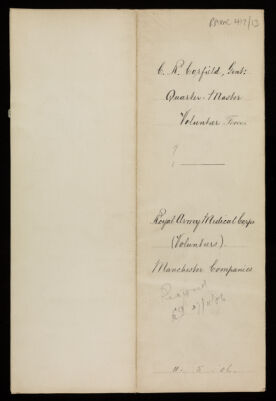 C. R. Corfield, Gent:
Quarter-Master
Volunteer Force
?
Royal Army Medical Corps
(Volunteers).
Manchester Companies
11. 5. 06.